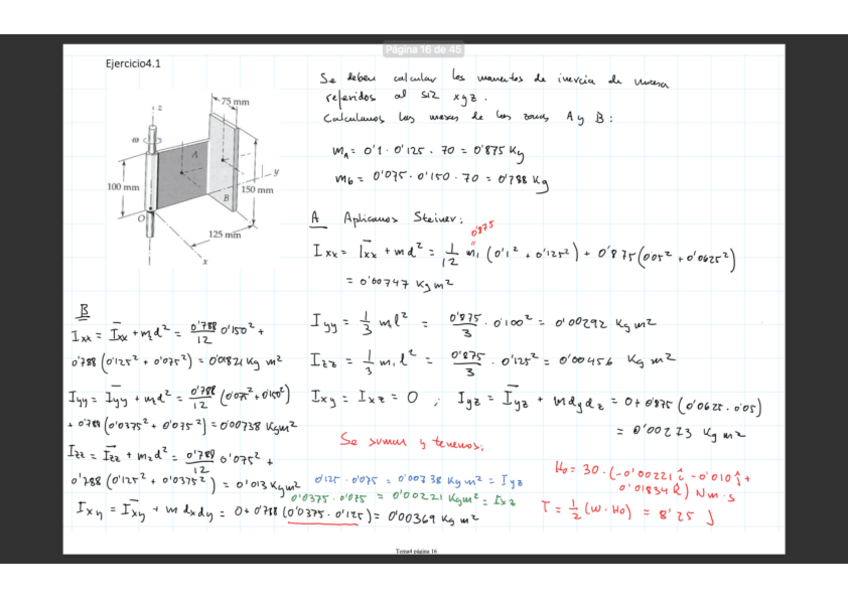 Página 16 de 45
Ejercicio4.1
Se deben calcular los momentos de inercia de masa
referidos al siz xyz.
Calculamos las masas de las zonas A y B:
mA = 0'1 · 0'125 · 70 = 0'875 Kg
mB = 0'075 · 0'150 · 70 = 0'788 Kg
z
75 mm
ω
A
y
100 mm
B
150 mm
O
125 mm
x
A Aplicamos Steiner:
0'875
Ixx = Ixx + md² = 1/12 m1 (0'1² + 0'125²) + 0'875 (005² + 0'0625²)
= 0'00747 Kg m²
Iyy = 1/3 ml² = 0'875/3 · 0'100² = 0'00292 Kg m²
Izz = 1/3 m1 l² = 0'875/3 · 0'125² = 0'00456 Kg m²
Ixy = Ixz = 0 ; Iyz = Iyz + mdydz = 0+0'875 (0'0625 · 0'05)
= 0'00273 Kg m²
B
Ixx = Ixx + m2d² = 0'788/12 0'150² +
0'788 (0'125² + 0'075²) = 0'01821 Kg m²
Iyy = Iyy + md² = 0'788/12 (0'075² + 0'150²)
+ 0'788 (0'0375² + 0'075²) = 0'00738 Kgm²
Izz = Izz + m2d² = 0'788/12 0'075² +
0'788 (0'125² + 0'0375²) = 0'013 Kgm²
Ixy = Ixy + m dxdy = 0 + 0'788 (0'0375 · 0'125) = 0'00369 Kg m²
Se suman y tenemos:
0'125 · 0'075 = 0'00738 Kg m² = Iyz
0'0375 · 0'075 = 0'00221 Kgm² = Ixz
Ho = 30 · (-0'00221 i - 0'010 j +
0'01834 k) Nm·s
T = 1/2 (W · Ho) = 8'25 J
Tema4 página 16